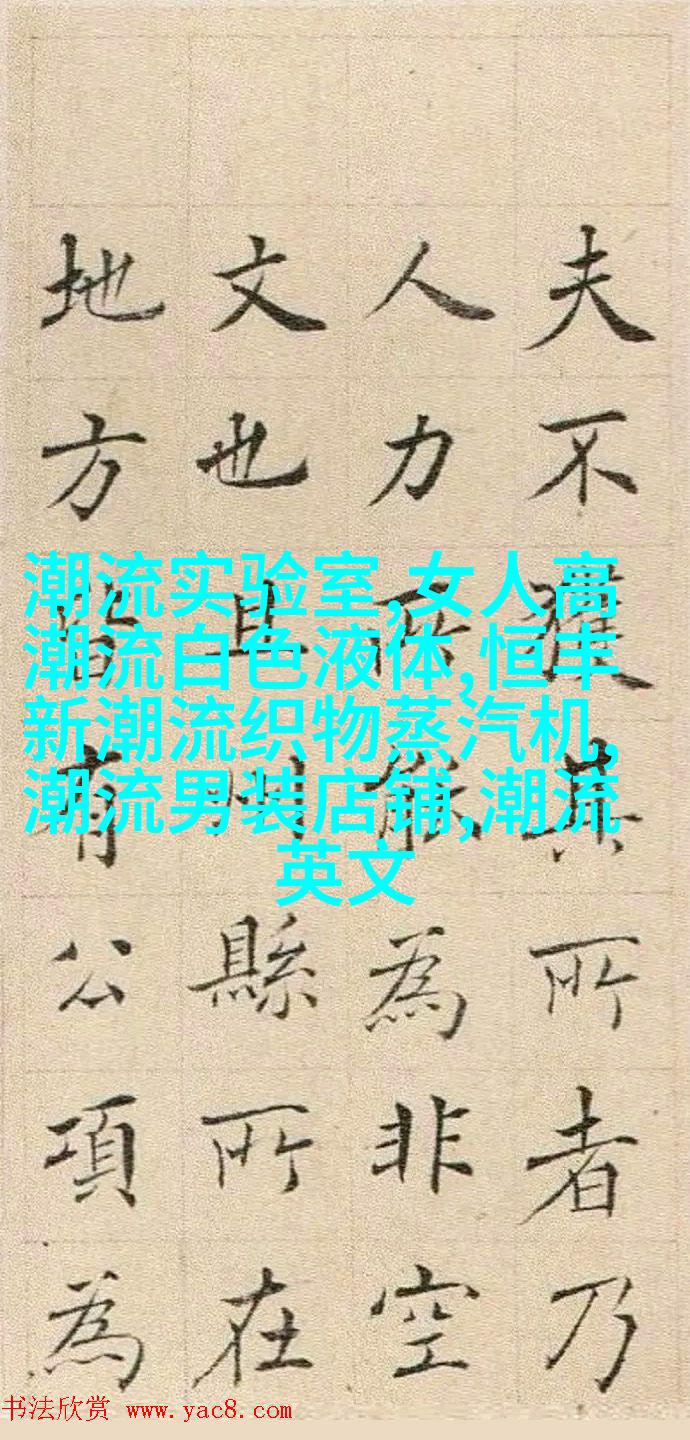 夫不獲其所者乃
人力所能為非空
文也且州縣所在
地方皆有公項為
潮流实验室,女人高
潮流白色液体,恒丰
新潮流织物蒸汽机,
潮流男装店铺,潮流
英文
书法欣赏 www.yac8.com